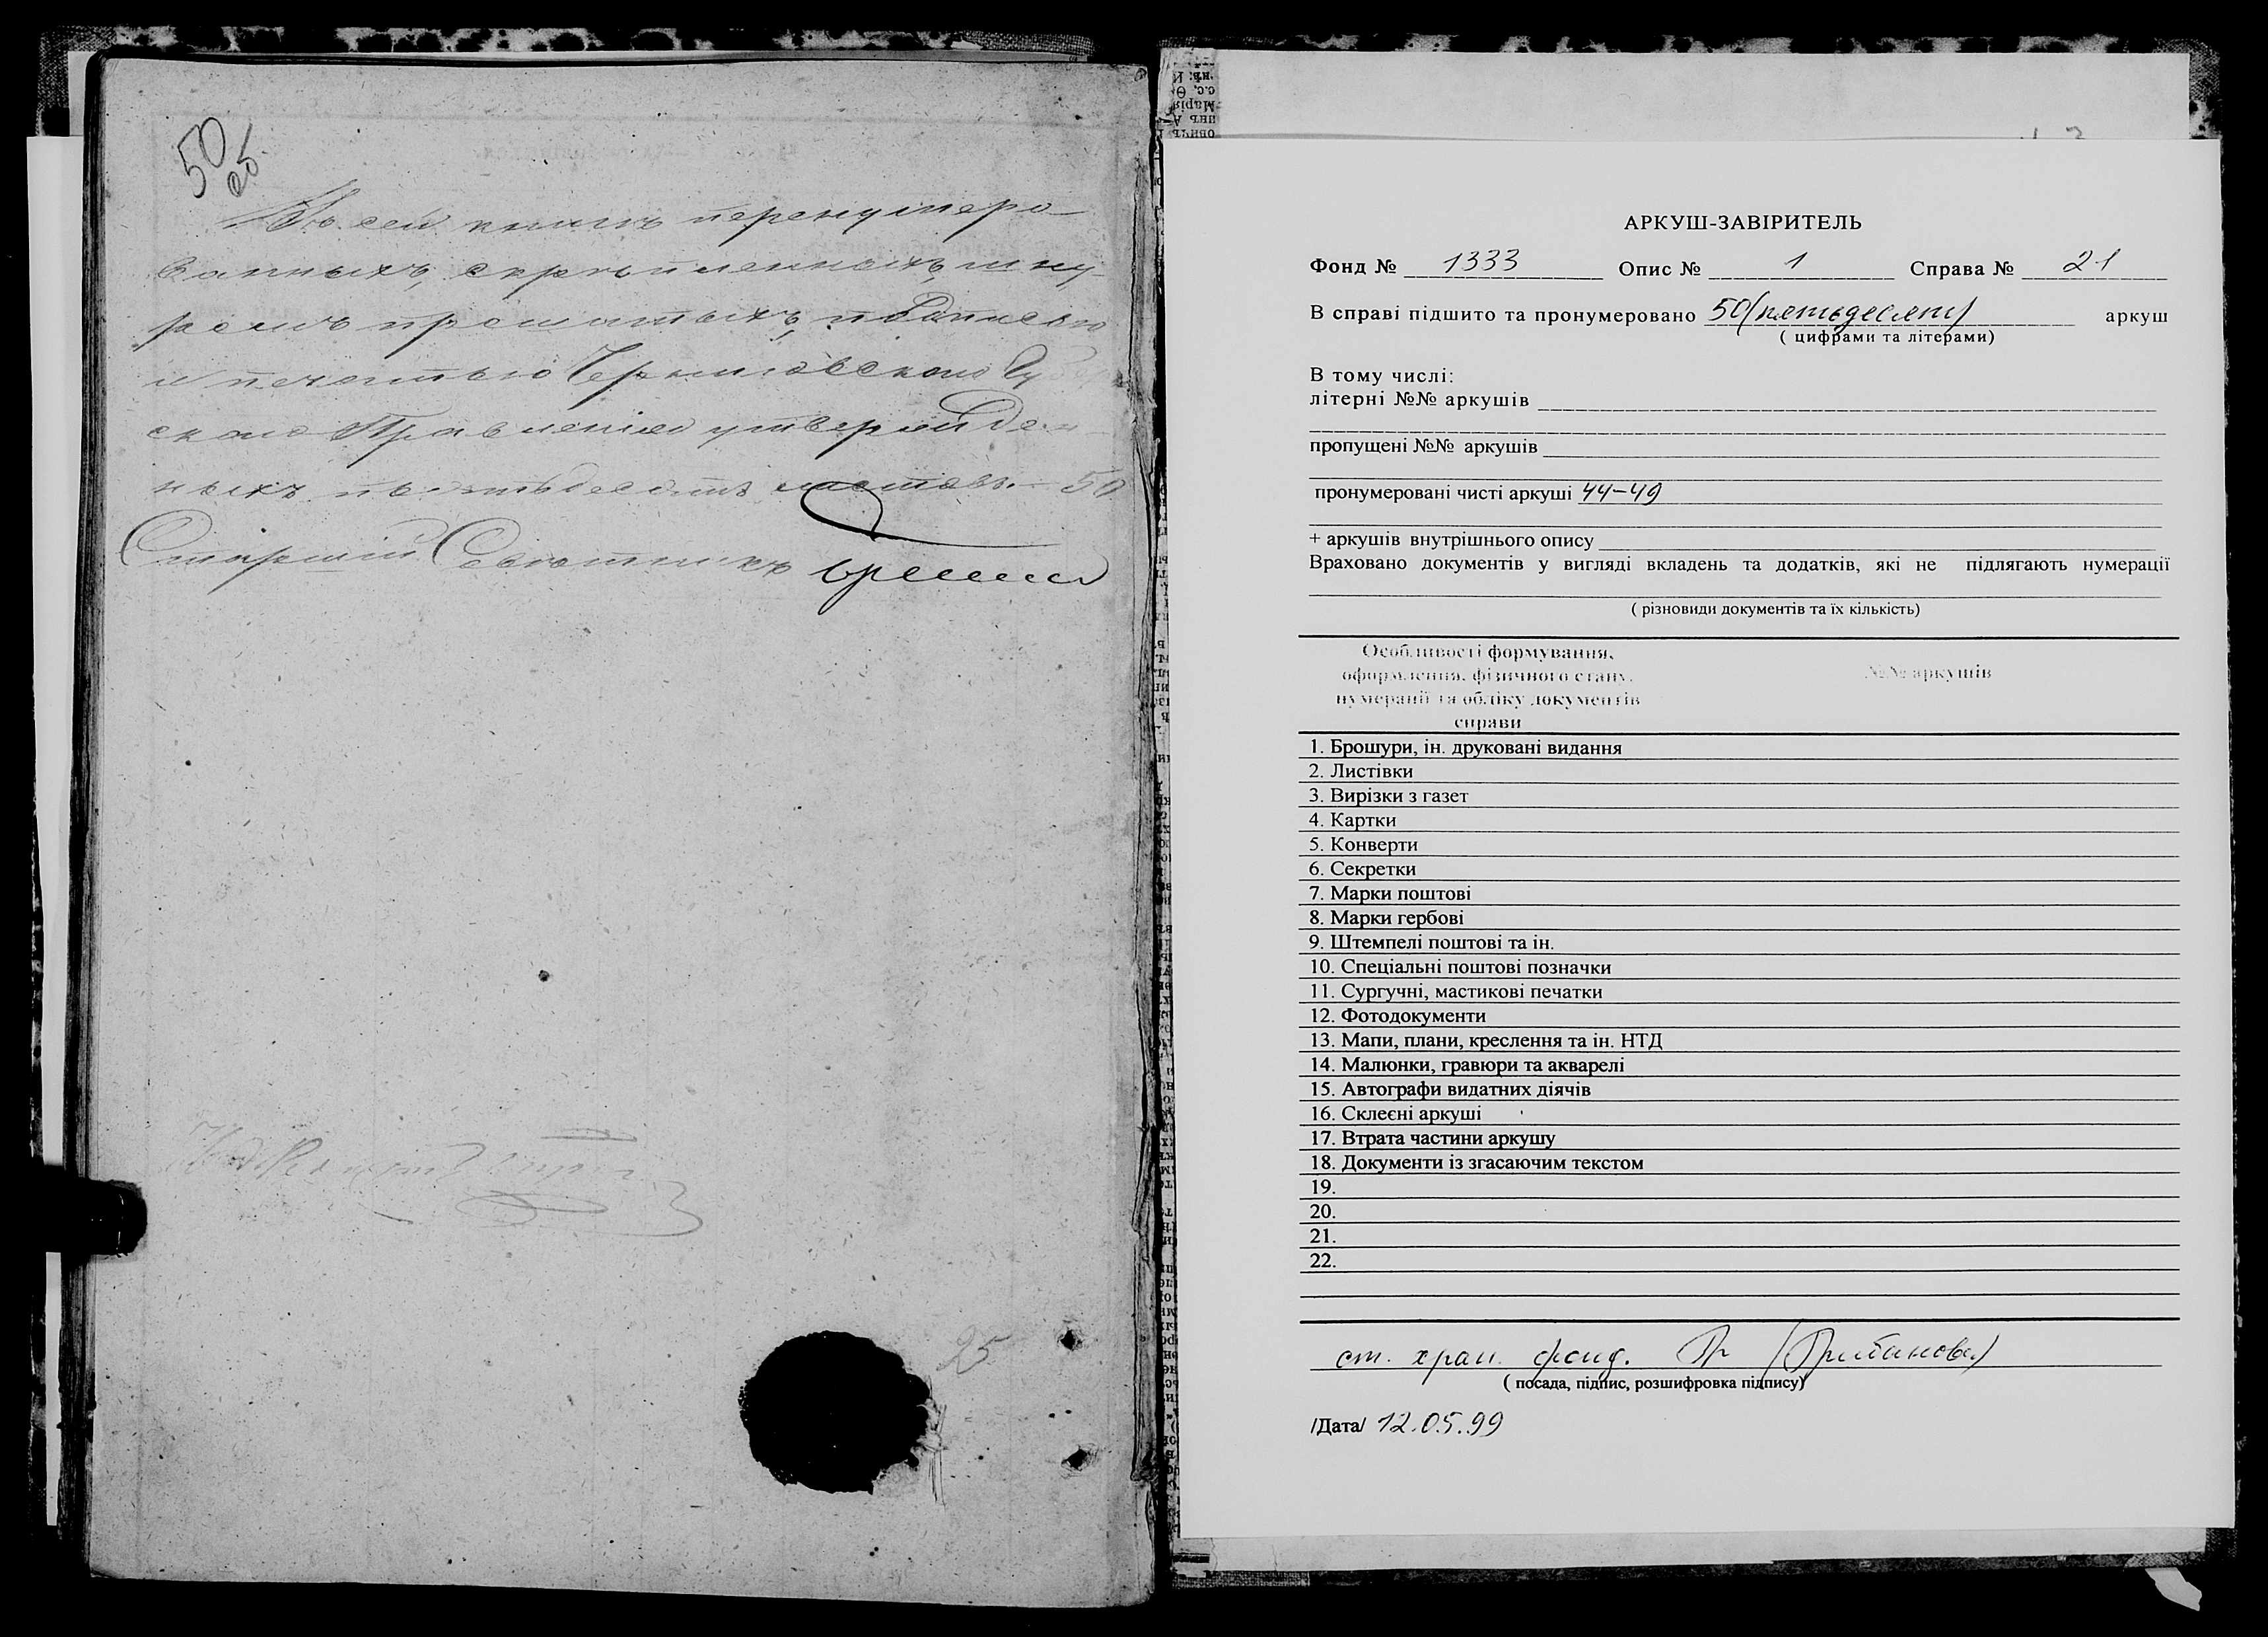 50
25
Въ сей книгѣ перенумеро-
ванныхъ, скрѣпленныхъ, шну-
ромъ прошитыхъ, подписью
и печатью Черниговскаго Гу
скаго Правленія утвержден-
ныхъ пятьдесятъ листовъ. — 50
Старшій Совѣтникъ
25
АРКУШ-ЗАВІРИТЕЛЬ
Фонд № 1333 Опис № 1 Справа № 21
В справі підшито та пронумеровано 50 (пятьдесят) аркуш
( цифрами та літерами)
В тому числі:
літерні №№ аркушів
пропущені №№ аркушів
пронумеровані чисті аркуші 44-49
+ аркушів внутрішнього опису
Враховано документів у вигляді вкладень та додатків, які не підлягають нумерації
( різновиди документів та їх кількість)
Особливості формування, №№ аркушів
оформлення, фізичного стану,
нумерації та обліку документів
справи
1. Брошури, ін. друковані видання
2. Листівки
3. Вирізки з газет
4. Картки
5. Конверти
6. Секретки
7. Марки поштові
8. Марки гербові
9. Штемпелі поштові та ін.
10. Спеціальні поштові позначки
11. Сургучні, мастикові печатки
12. Фотодокументи
13. Мапи, плани, креслення та ін. НТД
14. Малюнки, гравюри та акварелі
15. Автографи видатних діячів
16. Склеєні аркуші
17. Втрата частини аркушу
18. Документи із згасаючим текстом
19.
20.
21.
22.
ст. хран. фонд.
( посада, підпис, розшифровка підпису)
/Дата/ 12.05.99